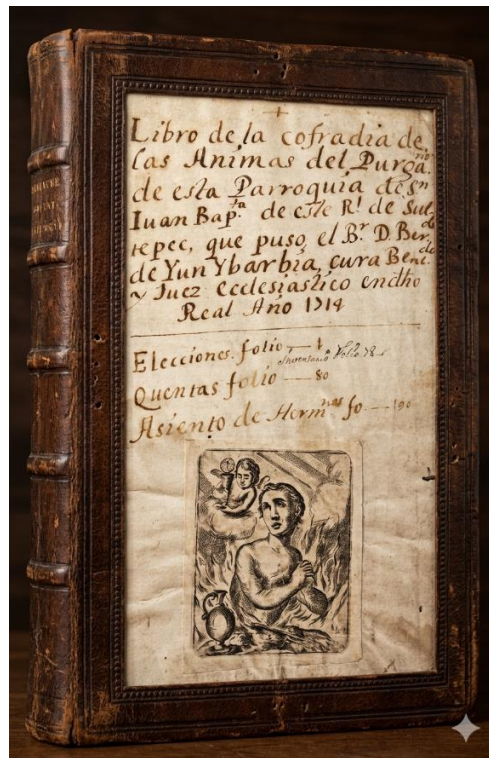 Libro de la cofradia de
las Animas del Purga.rio
de esta Parroquia de Sn
Iuan Bap.ta de este Rl. de Sul-
tepec, que puso el Br. D. Ber.do
de Yun Ybarbia, cura Bene.do
y Juez ecclesiastico en dho
Real Año 1714
Elecciones. folio — 1
Inventario folio 78
Quentas folio — 80
Asiento de Herm.nos fo — 190